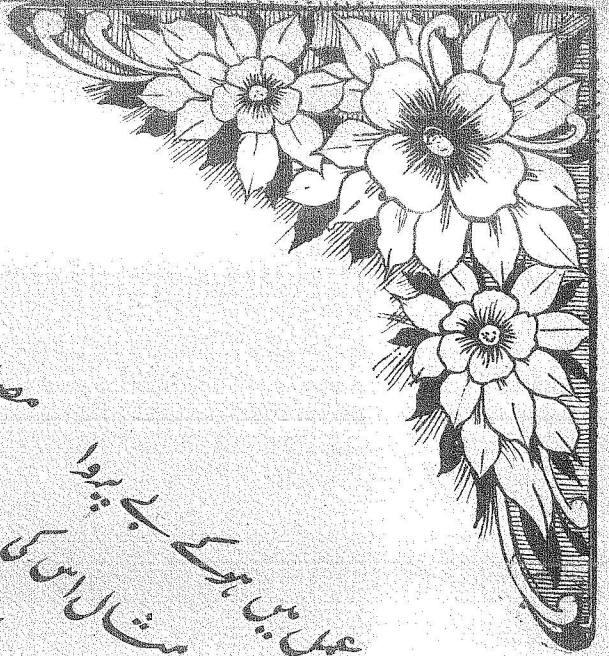 عمل میں ہو کے بے پروا
مثال اس کی